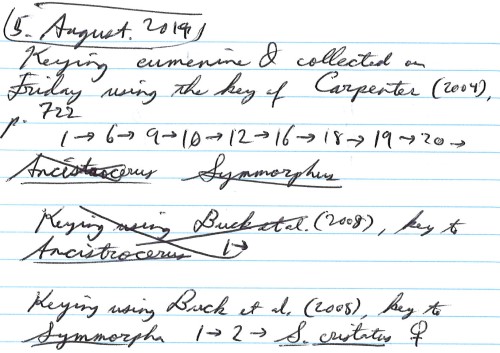 (5. August. 2019)
Keying eumenine & collected on
Friday using the key of Carpenter (2004),
p. 722
1 → 6 → 9 → 10 → 12 → 16 → 18 → 19 → 20 →
Ancistrocerus Symmorphus
Keying using Buck et al. (2008), key to
Ancistrocerus 1→
Keying using Buck et al. (2008), key to
Symmorphu 1 → 2 → S. cristatus ♀